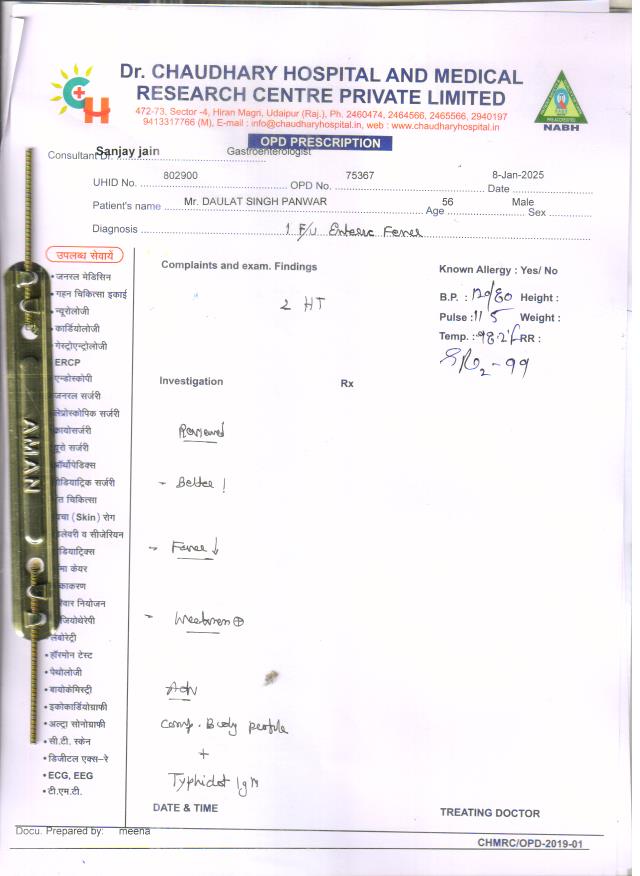 Dr. CHAUDHARY HOSPITAL AND MEDICAL
RESEARCH CENTRE PRIVATE LIMITED
472-73, Sector -4, Hiran Magri, Udaipur (Raj.), Ph. 2460474, 2464566, 2465566, 2940197
9413317766 (M), E-mail : info@chaudharyhospital.in, web : www.chaudharyhospital.in
CH
NABH
OPD PRESCRIPTION
Consultant Dr. Sanjay jain Gastroenterologist
UHID No. 802900 OPD No. 75367 Date 8-Jan-2025
Patient's name Mr. DAULAT SINGH PANWAR Age 56 Sex Male
Diagnosis F/U Enteric Fever
उपलब्ध सेवायें
• जनरल मेडिसिन
• गहन चिकित्सा इकाई
• न्यूरोलोजी
• कार्डियोलोजी
गेस्ट्रोएन्ट्रोलोजी
ERCP
एन्डोस्कोपी
जनरल सर्जरी
लेप्रोस्कोपिक सर्जरी
सर्जरी
सर्जरी
सर्जरी
चिकित्सा
(Skin) रोग
व सीजेरियन
केयर
नियोजन
• हॉरमोन टेस्ट
• पेथोलोजी
• बायोकेमिस्ट्री
• इकोकार्डियोग्राफी
• अल्ट्रा सोनोग्राफी
• सी.टी. स्केन
• डिजीटल एक्स-रे
• ECG, EEG
• टी.एम.टी.
AMAN
Complaints and exam. Findings
2 HT
Known Allergy : Yes/ No
B.P. : 120/80 Height :
Pulse : 115 Weight :
Temp. : 98.2°F RR :
SPO2 - 99
Investigation Rx
Reviewed
- Better !
- Fever ↓
- Weakness ⊕
Adv
Comp. Body profile
+
Typhidot IgM
DATE & TIME TREATING DOCTOR
Docu. Prepared by: meena
CHMRC/OPD-2019-01